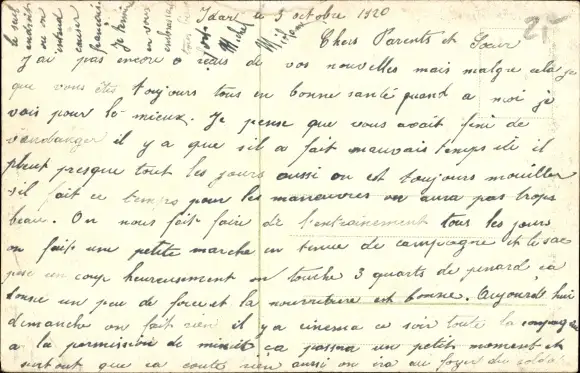 Idar le 5 octobre 1920
Chers Parents et Sœur
J'ai pas encore recus de vos nouvelles mais malgre cela je
que vous êtes toujours tous en bonne santé quand a moi je
vais pour le mieux. Je pense que vous avait fini de
vendanger il y a que s'il a fait mauvais temps ici il
pleut presque tout les jours aussi on est toujours mouiller
s'il fait ce temps pour les manœuvres on aura pas trops
beau. On nous fait faire de l'entrainement tous les jours
on fait une petite marche en tenue de campagne et le sac
pese un coup heureusement on touche 3 quarts de pinard ca
donne un peu de force et la nourriture est bonne. Aujourd'hui
dimanche on fait rien il y a cinema ce soir toute la compagnie
a la permission de minuit ça passera un petit moment et
surtout que ca coute rien aussi on ira au foyer du soldat
je suis
endroit
ou on
entend
causer
français
Je termine
en vous
embrassant
tous
Michel
21-